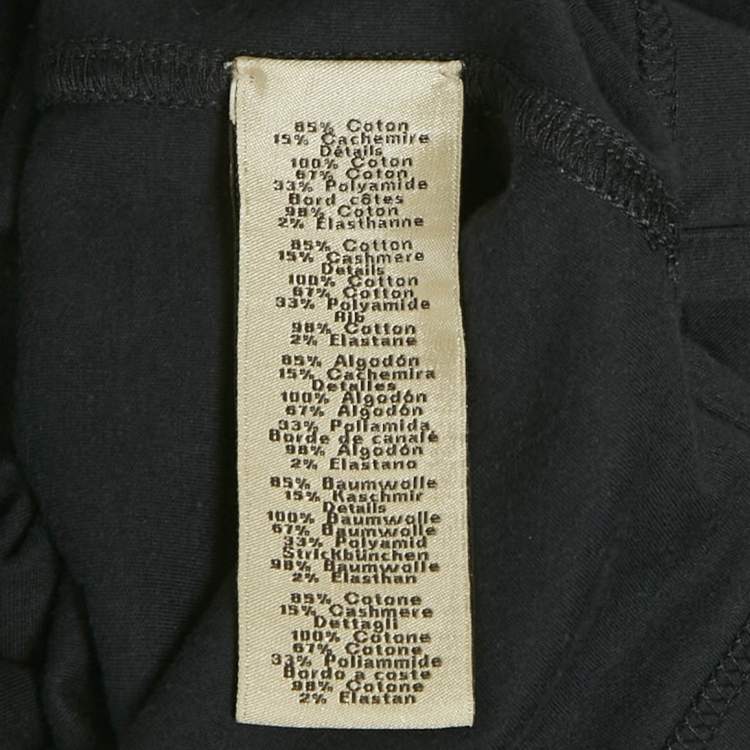 85% Coton
15% Cachemire
Détails
100% Coton
67% Coton
33% Polyamide
Bord côtes
98% Coton
2% Élasthanne
85% Cotton
15% Cashmere
Details
100% Cotton
67% Cotton
33% Polyamide
Rib
98% Cotton
2% Elastane
85% Algodón
15% Cachemira
Detalles
100% Algodón
67% Algodón
33% Poliamida
Borde de canalé
98% Algodón
2% Elastano
85% Baumwolle
15% Kaschmir
Details
100% Baumwolle
67% Baumwolle
33% Polyamid
Strickbünchen
98% Baumwolle
2% Elasthan
85% Cotone
15% Cashmere
Dettagli
100% Cotone
67% Cotone
33% Poliammide
Bordo a coste
98% Cotone
2% Elastan